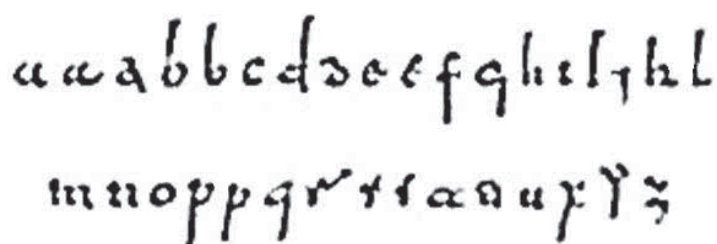 a a a b b c d d e e f g h i l j h l
m n o p p q r r s t t u x y z